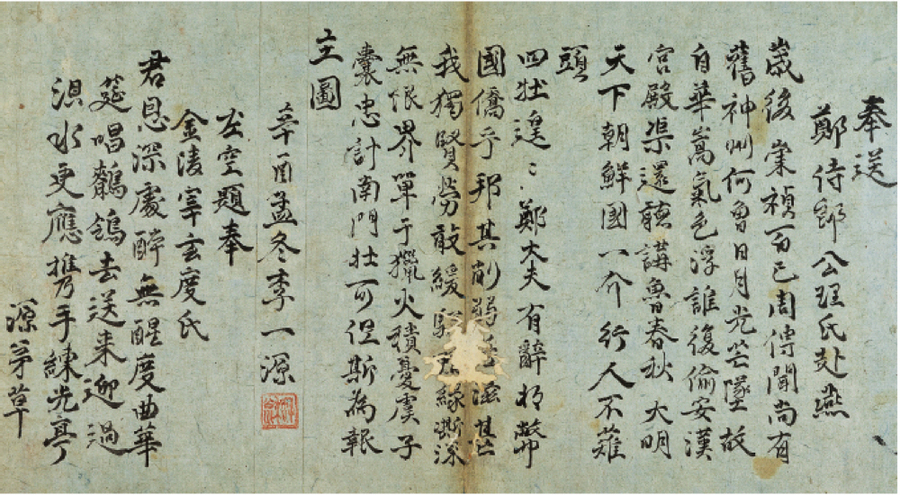 奉送
鄭侍郎公理氏赴燕
歲後崇禎百已周傳聞尚有
舊神州何曾日月光芒墜故
自華嵩氣色浮誰復偷安漢
宮殿渠還聽講魯春秋大明
天下朝鮮國一介行人不薙
頭
四牡遑〻鄭大夫有辭將幣
國僑乎邦其削弱滋甚
我獨賢勞敢緩驅緣
無限界單于獵火積憂虞子
囊忠計南門壯可但斯為報
主圖
辛酉孟冬李一源
左空題奉
金陵宰玄度氏
君恩深處醉無醒度曲華
筵唱鷓鴣去送来迎過
浿水更應携手練光亭
源草